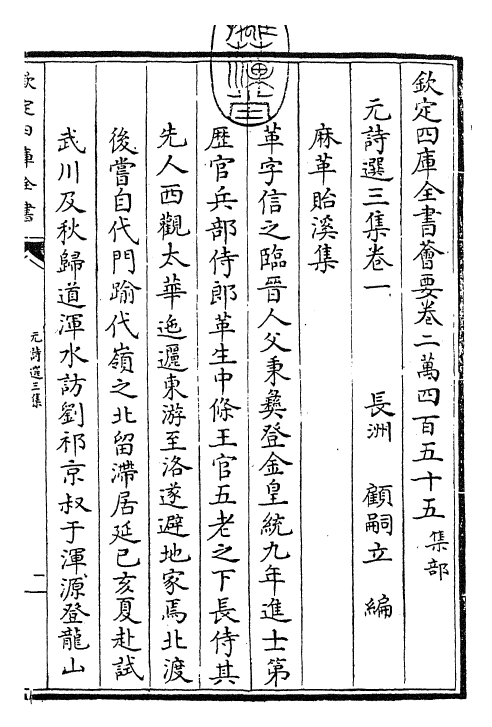 欽定四庫全書薈要卷二萬四百五十五 集部
元詩選三集卷一
長洲 顧嗣立 編
麻革貽溪集
革字信之臨晉人父秉彝登金皇統九年進士第
歷官兵部侍郎革生中條王官五老之下長侍其
先人西觀太華迤邐東游至洛遂避地家焉北渡
後嘗自代門踰代嶺之北留滯居延已亥夏赴試
武川及秋歸道渾水訪劉祁京叔于渾源登龍山
欽定四庫全書
元詩選三集
二